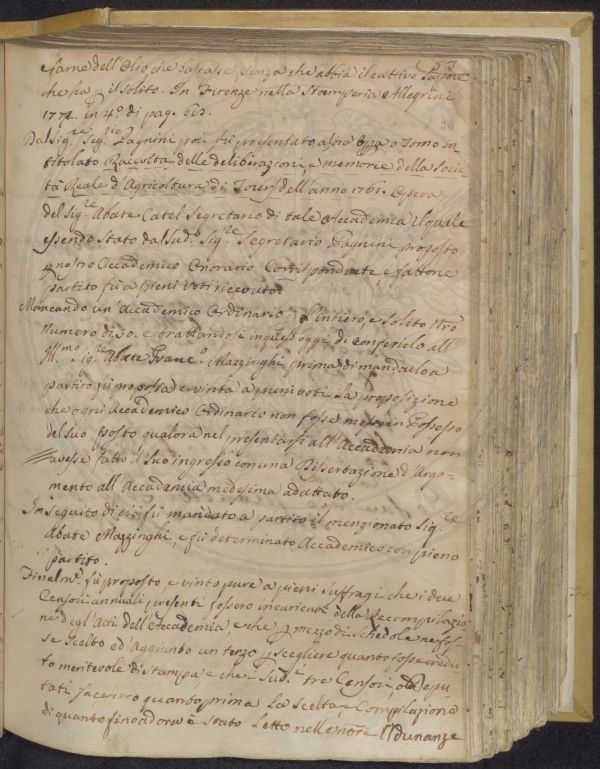 e farne dell'Olio che bastasse senza che abbia il cattivo sapore
che ha p il solito. In Firenze nella Stamperia Allegrini
1774. in 4.º di pag.
Dal Sig.re Seg.rio Pagnini poi fu presentato altra Opa o Tomo in
titolato Raccolta delle deliberazioni, e memorie della Socie
tà Reale d'Agricoltura di Tours dell'anno 1761. Opera
del Sig.re Abate Catel Segretario di tale Accademia il quale
essendo stato dal Sud.º Sig.re Segretario Pagnini proposto
p nostro Accademico Onorario Corrispondente e fattone
partito fù a pieni voti ricevuto.
Mancando un' Accademico Ordinario p l'intiero, e solito nro
numero di 30. e trattandosi in quest'oggi di conferirlo all'
Ill.mo Sig.re Abate Franc.º Mazzinghi prima di mandarlo a
partito fù proposta e vinta a pieni voti la proposizione
che ogni Accademico Ordinario non fosse messo in Possesso
del suo posto qualora nel presentarsi all'Accademia non
avesse fatto il suo ingresso con una Dissertazione d'Argo-
mento all'Accademia medesima adattato.
In seguito di ciò fù mandato a partito il menzionato Sig.re
Abate Mazzinghi, e fù determinato Accademico con pieno
partito.
Finalm.e fù proposto, e vinto pure a pieni suffragi che i due
Censori annuali presenti fossero incaricati della Recompilazio
ne degl'Atti dell'Accademia, e che p mezzo di schedole ne fos
se scelto ed aggiunto un terzo p scegliere quanto fosse credu
to meritevole di stampa e che i Sud.i tre Censori, o Depu
tati facessero quanto prima la scelta, e Compilazione
di quanto fino ad ora è stato letto nelle nore Adunanze